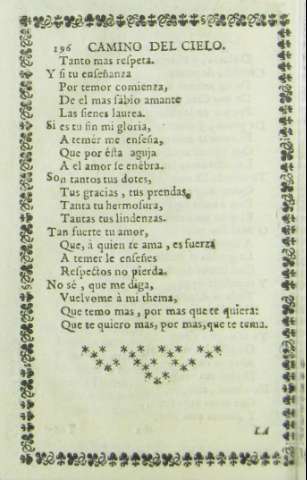 196 CAMINO DEL CIELO.
Tanto mas reſpeta.
Y ſi tu enſeñanza
Por temor comienza,
De el mas ſabio amante
Las ſienes laurea.
Si es tu fin mi gloria,
A temér me enſeña,
Que por éſta aguja
A el amor ſe enèbra.
Son tantos tus dotes,
Tus gracias, tus prendas,
Tanta tu hermoſura,
Tautas tus lindenzas.
Tan fuerte tu amor,
Que, à quien te ama, es fuerza
A temer le enſeñes
Reſpectos no pierda.
No sé, que me diga,
Vuelvome à mi thema,
Que temo mas, por mas que te quiera:
Que te quiero mas, por mas, que te tema.
LA